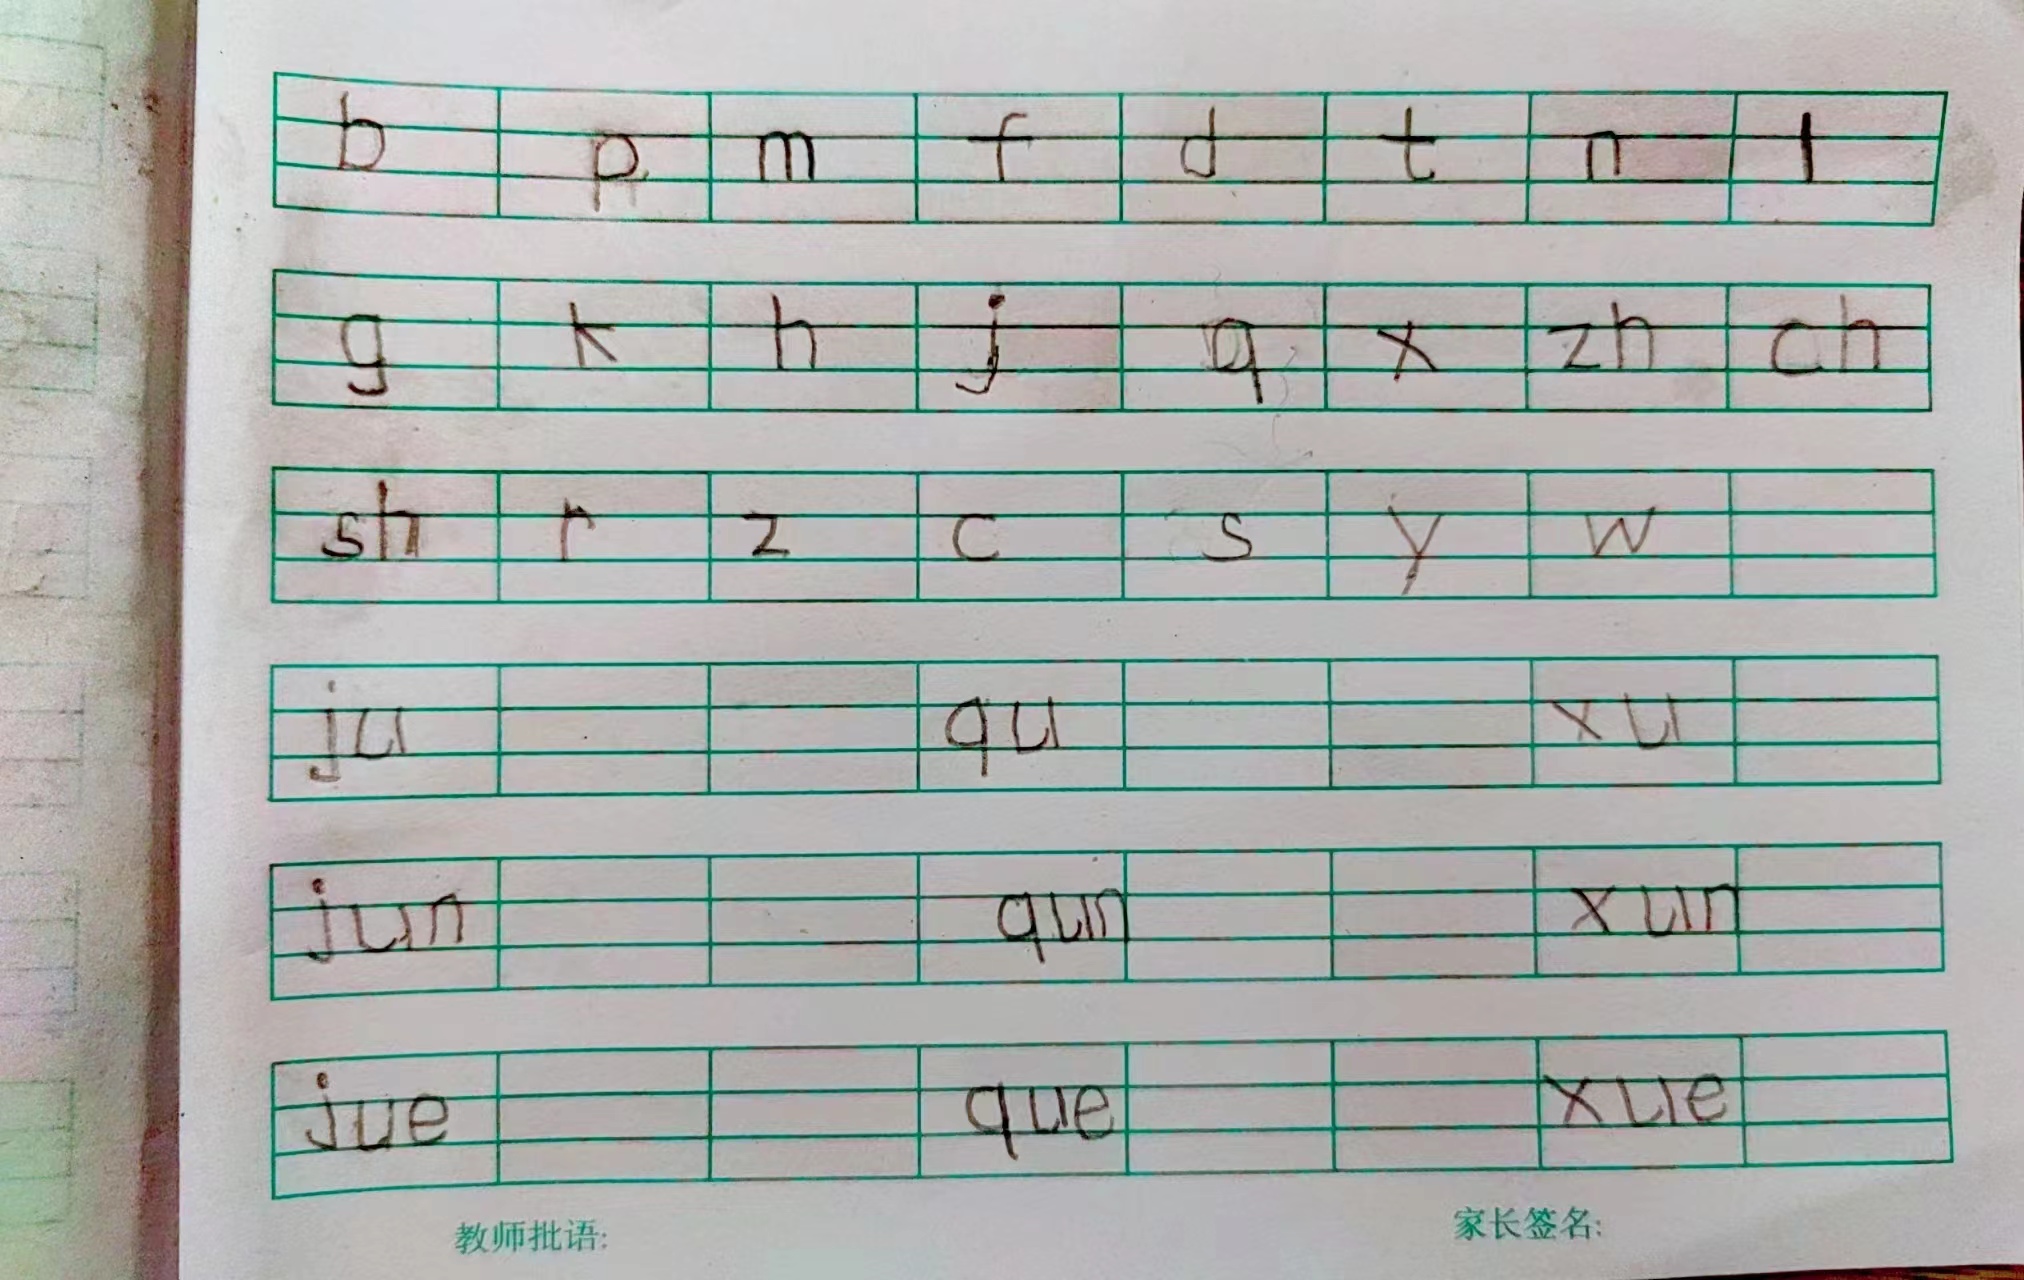 b p m f d t n l
g k h j q x zh ch
sh r z c s y w
ju qu xu
jun qun xun
jue que xue
教师批语: 家长签名: